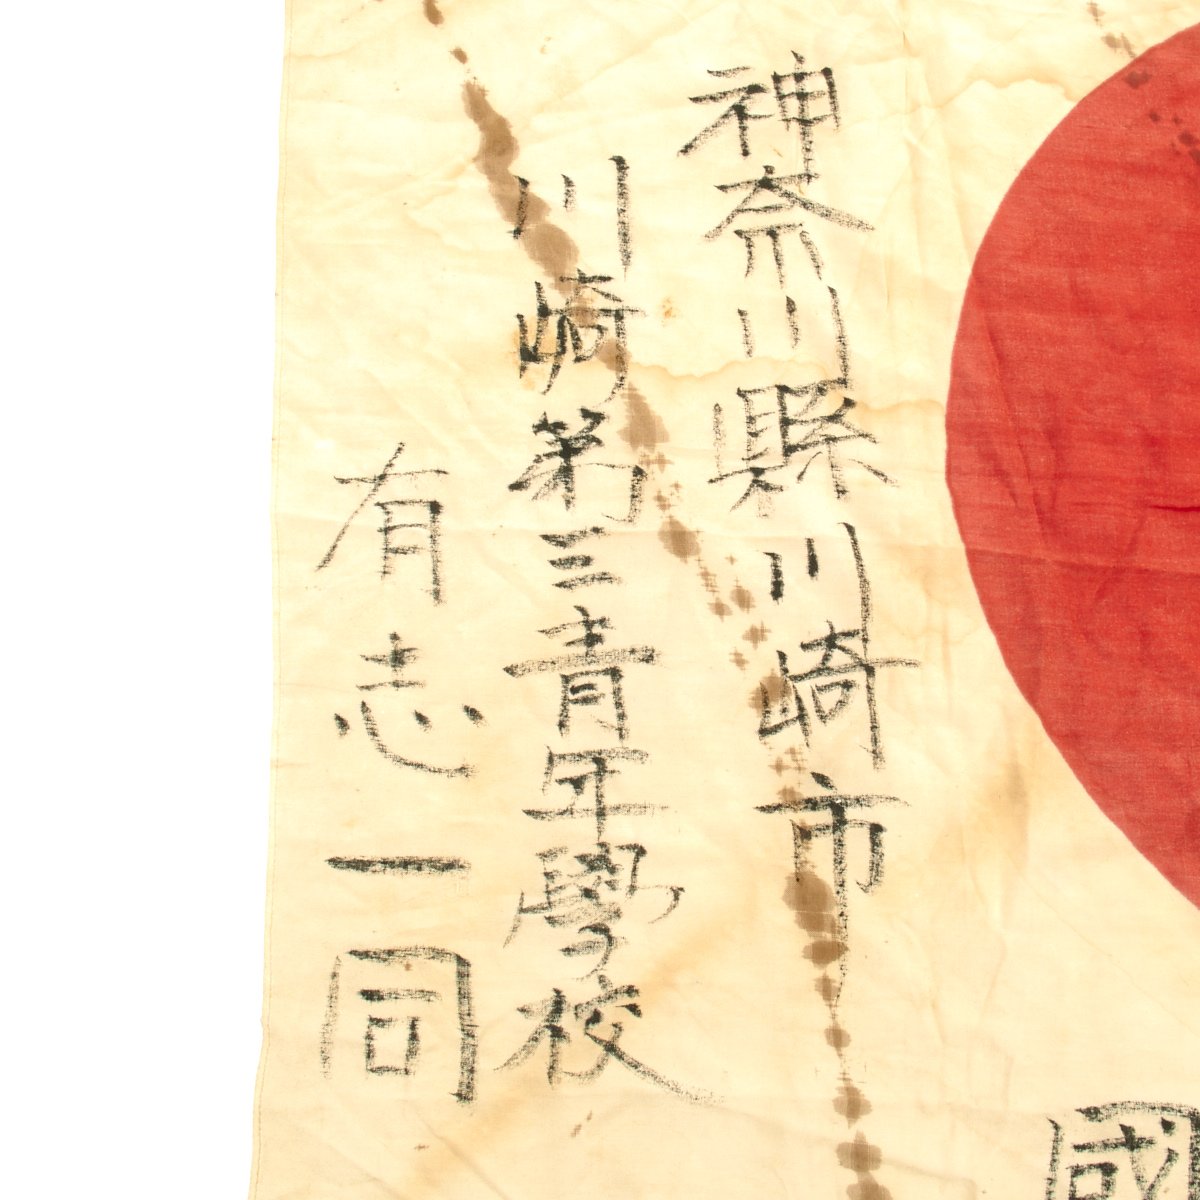 神奈川縣川崎市
川崎第三青年學校
有志一同
國